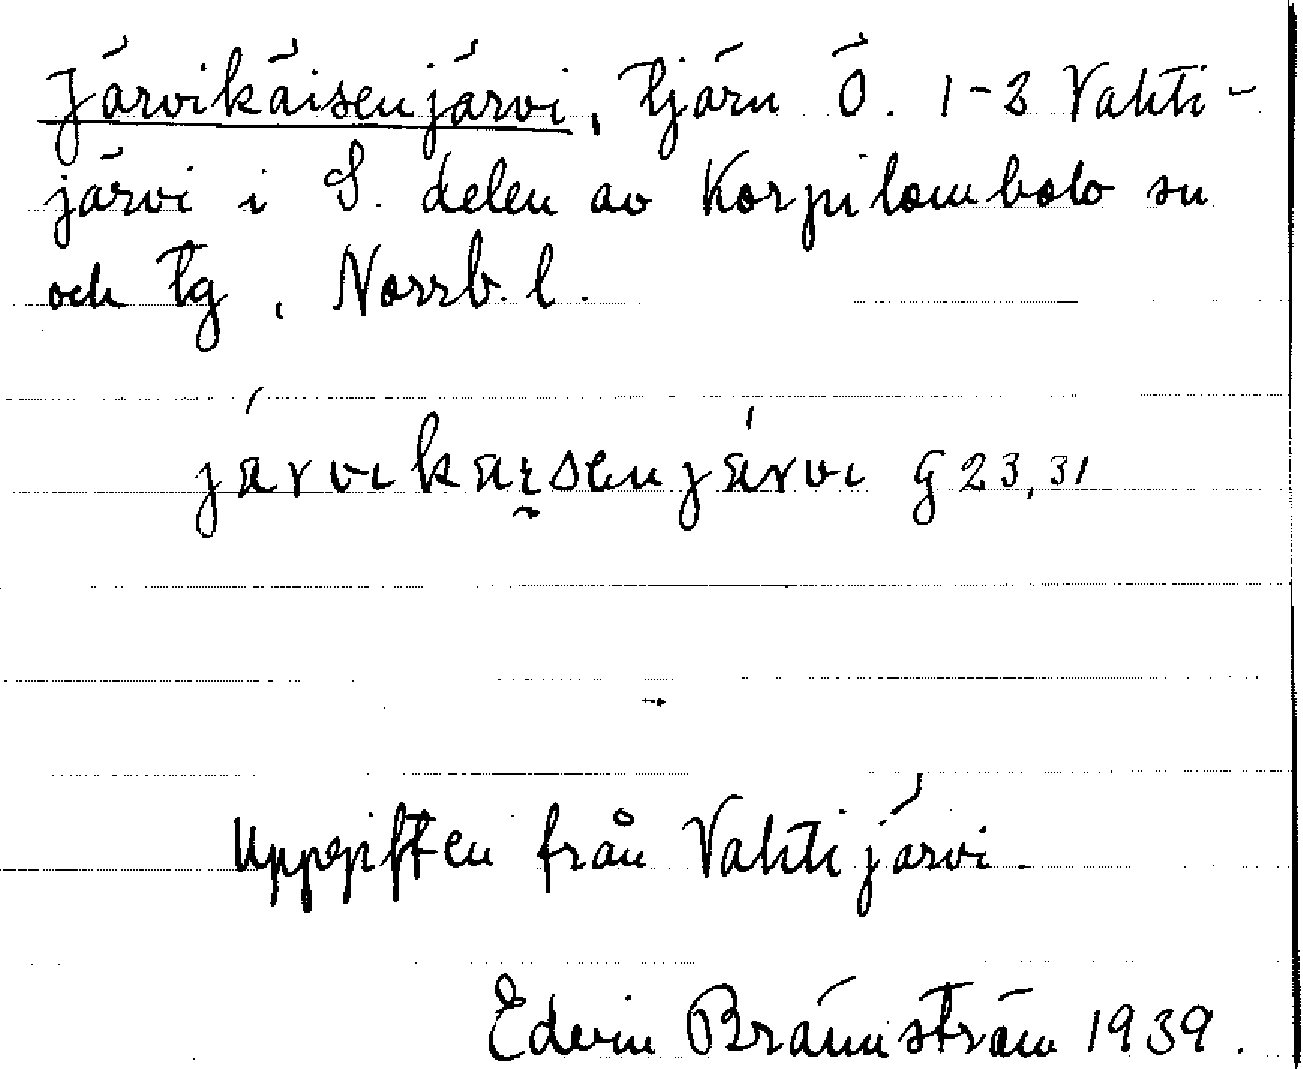 Järvikäisenjärvi, Tjärn Ö. 1-2 Vahti-
järvi i S. delen av Korpilombolo sn
och tg, Norrb. l.
järvikäi̯senjärvi G 23,31
Uppgiften från Vahtijärvi.
Edvin Brännström 1939.